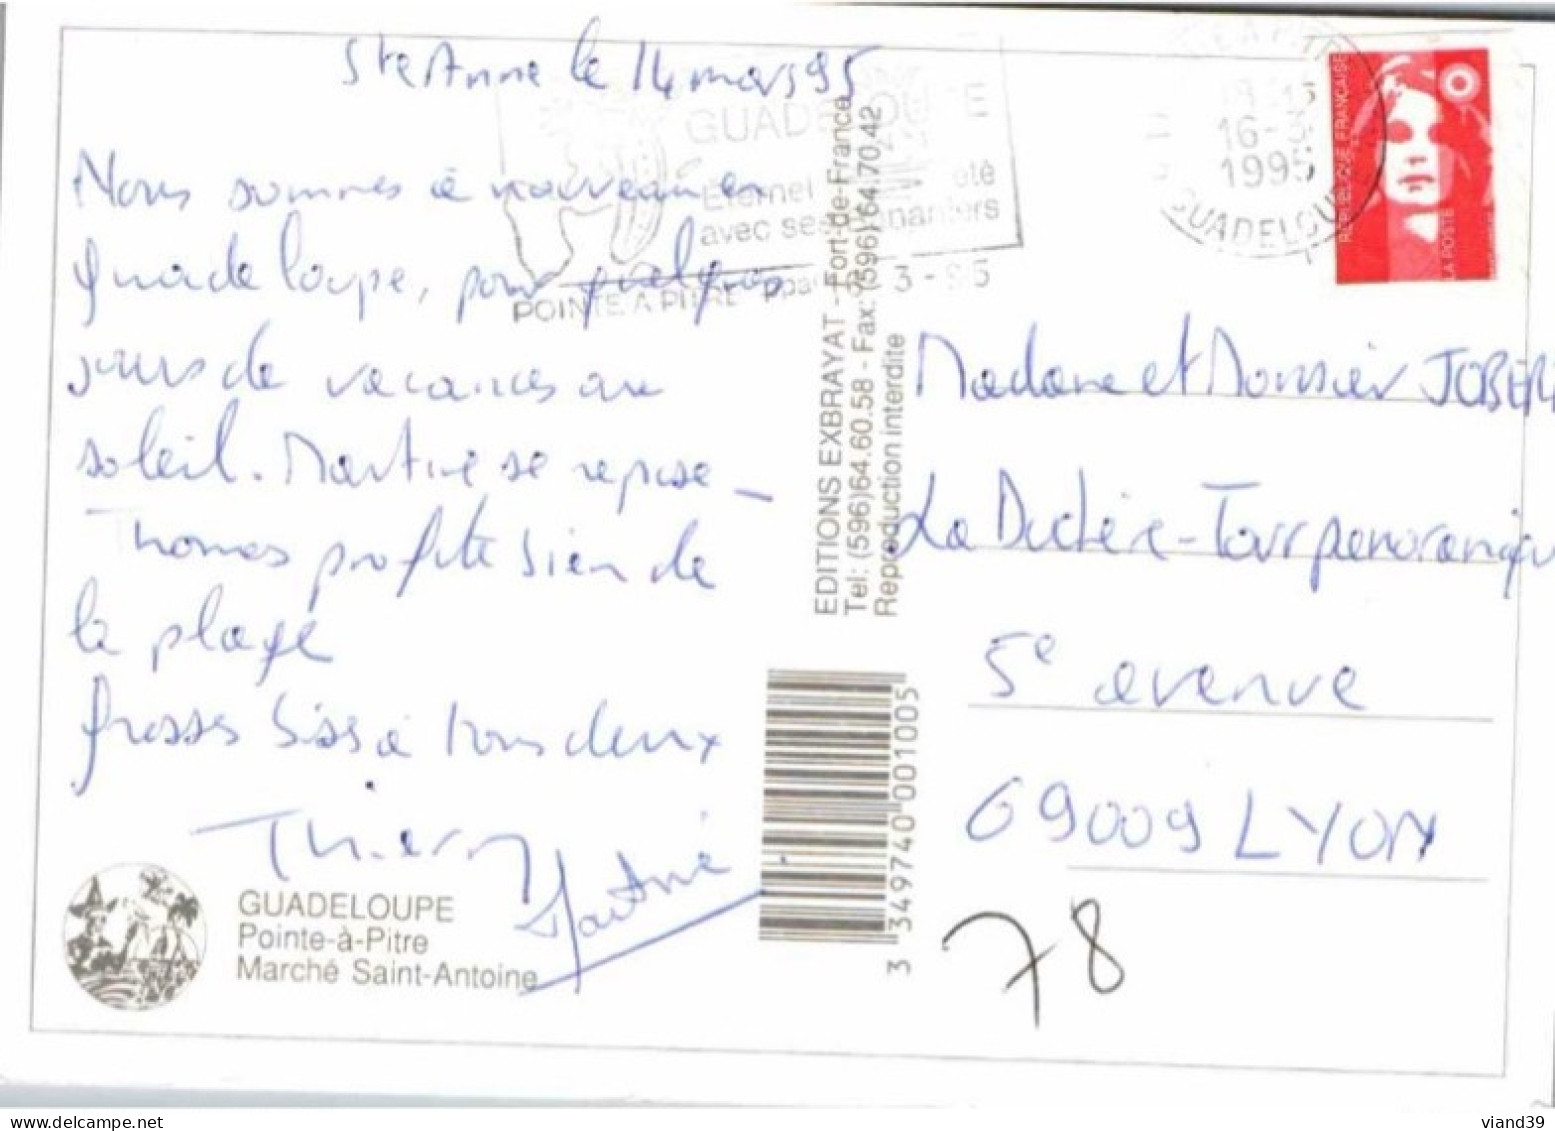 Ste Anne le 14 mars 95
Nous sommes à nouveau en
Guadeloupe, pour quelques
jours de vacances au
soleil. Martine se repose _
Thomas profite bien de
la plage
Grosses bises à tous deux
Thierry
Martine
GUADELOUPE
Pointe-à-Pitre
Marché Saint-Antoine
GUADELOUPE
Eternel
avec ses bananiers
POINTE A PITRE
3 - 95
EDITIONS EXBRAYAT - Fort-de-France
Tel: (596)64.60.58 - Fax: (596)64.70.42
Reproduction interdite
3 349740 001005
16-3
1995
GUADELOUPE
REPUBLIQUE FRANÇAISE
LA POSTE
Madame et Monsieur JOBER
La Duchère - Tour panoramique
5e avenue
69009 LYON
78
viand39